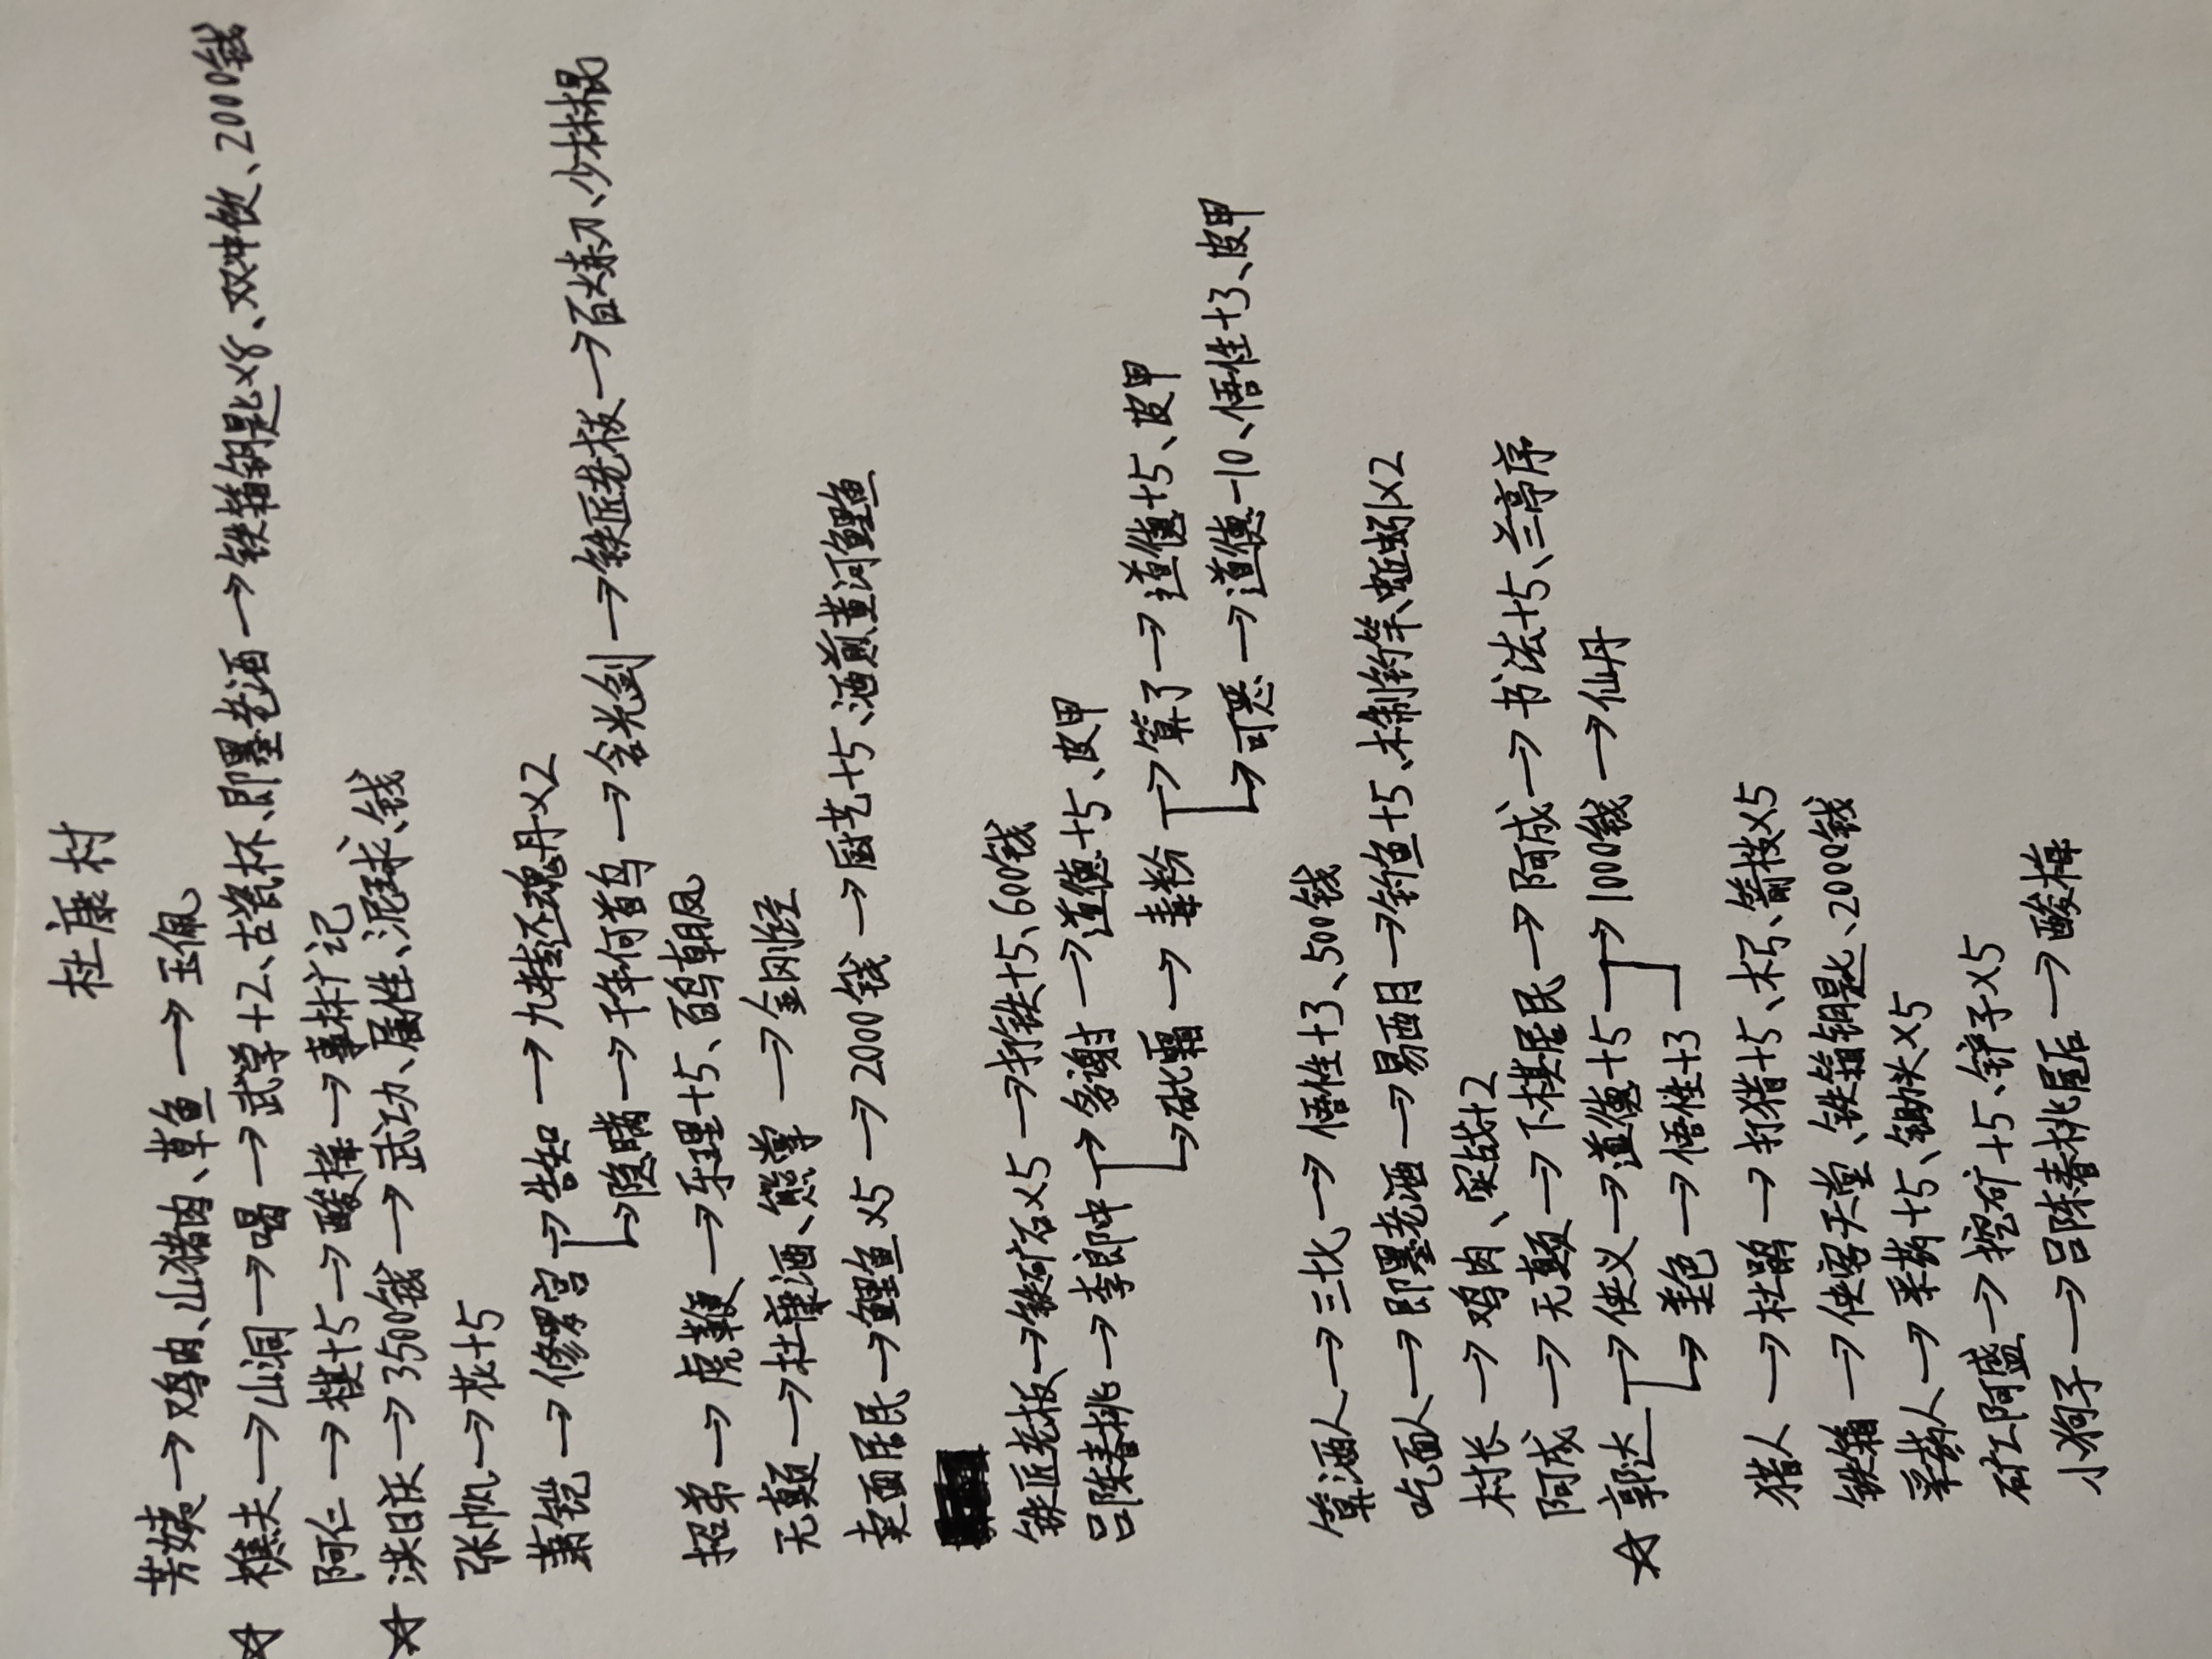 杜康村
芳姨→鸡肉、山猪肉、草鱼→玉佩
☆樵夫→山洞→喝→武学+2、古瓷杯、即墨老酒→铁箱钥匙×8、双冲饮、2000钱
阿仁→棋+5→酸梅→事林广记
☆洪日庆→3500钱→武功、属性、泥球、钱
张帆→花+5
萧铠→修罗宫→告知→九转还魂丹×2
→隐瞒→千年何首乌→含光剑→铁匠老板→百炼刀、少林棍
招弟→虎鞭→乐理+5、百鸟朝凤
无颠→杜康酒、熊掌→金刚经
卖面居民→鲤鱼×5→2000钱→厨艺+5、酒煎黄河鲤鱼
铁匠老板→铁矿石×5→打铁+5、600钱
吕陈春桃→李郎中→多谢→道德+5、皮甲
→砒霜→毒粉→算了→道德+5、皮甲
→可恶→道德-10、悟性+3、皮甲
算酒人→三比→悟性+3、500钱
吃面人→即墨老酒→易西月→钓鱼+5、木制钓竿、蚯蚓×2
村长→鸡肉、实战+2
阿成→无颠→下棋居民→阿成→书法+5、兰亭序
☆郭达→侠义→道德+5→1000钱→仙丹
→美色→悟性+3
猎人→杜鹃→打猎+5、木弓、箭枝×5
铁箱→侠客天堂、铁箱钥匙、2000钱
采药人→采药+5、锄头×5
矿工阿盛→挖矿+5、铲子×5
小狗子→吕陈春桃屋后→酸梅